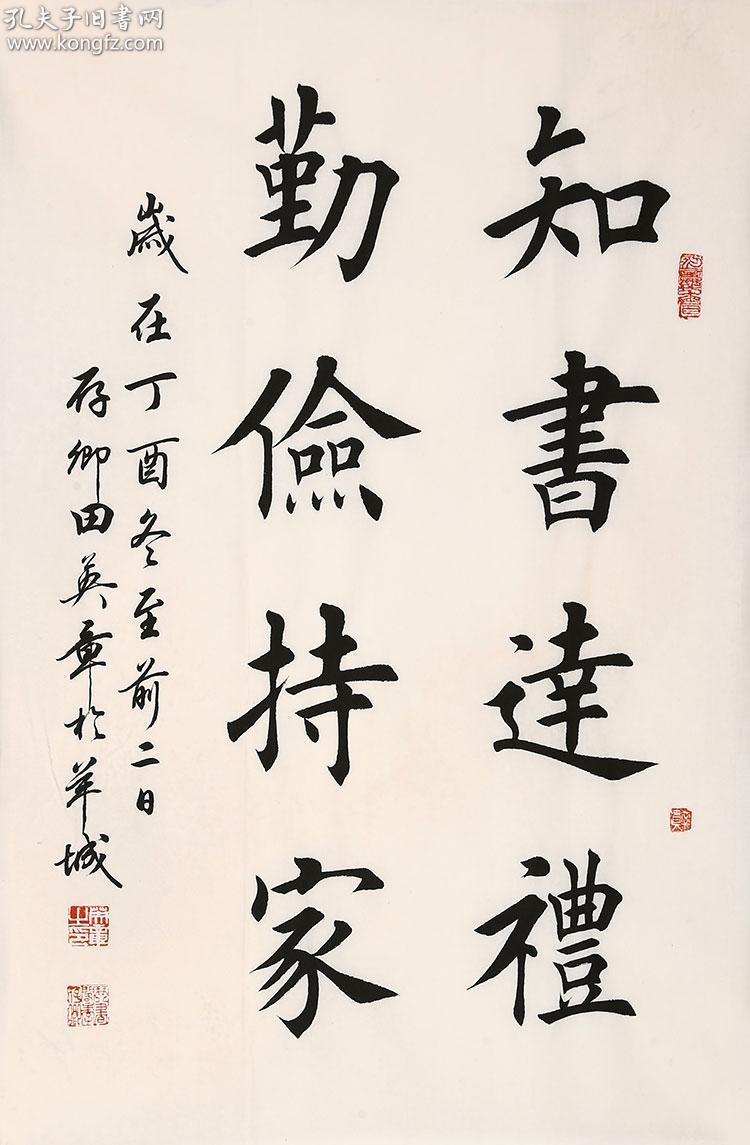 孔夫子旧书网
www.kongfz.com
知書達禮
勤儉持家
歲在丁酉冬至前二日
存卿田英章於羊城
英章之印